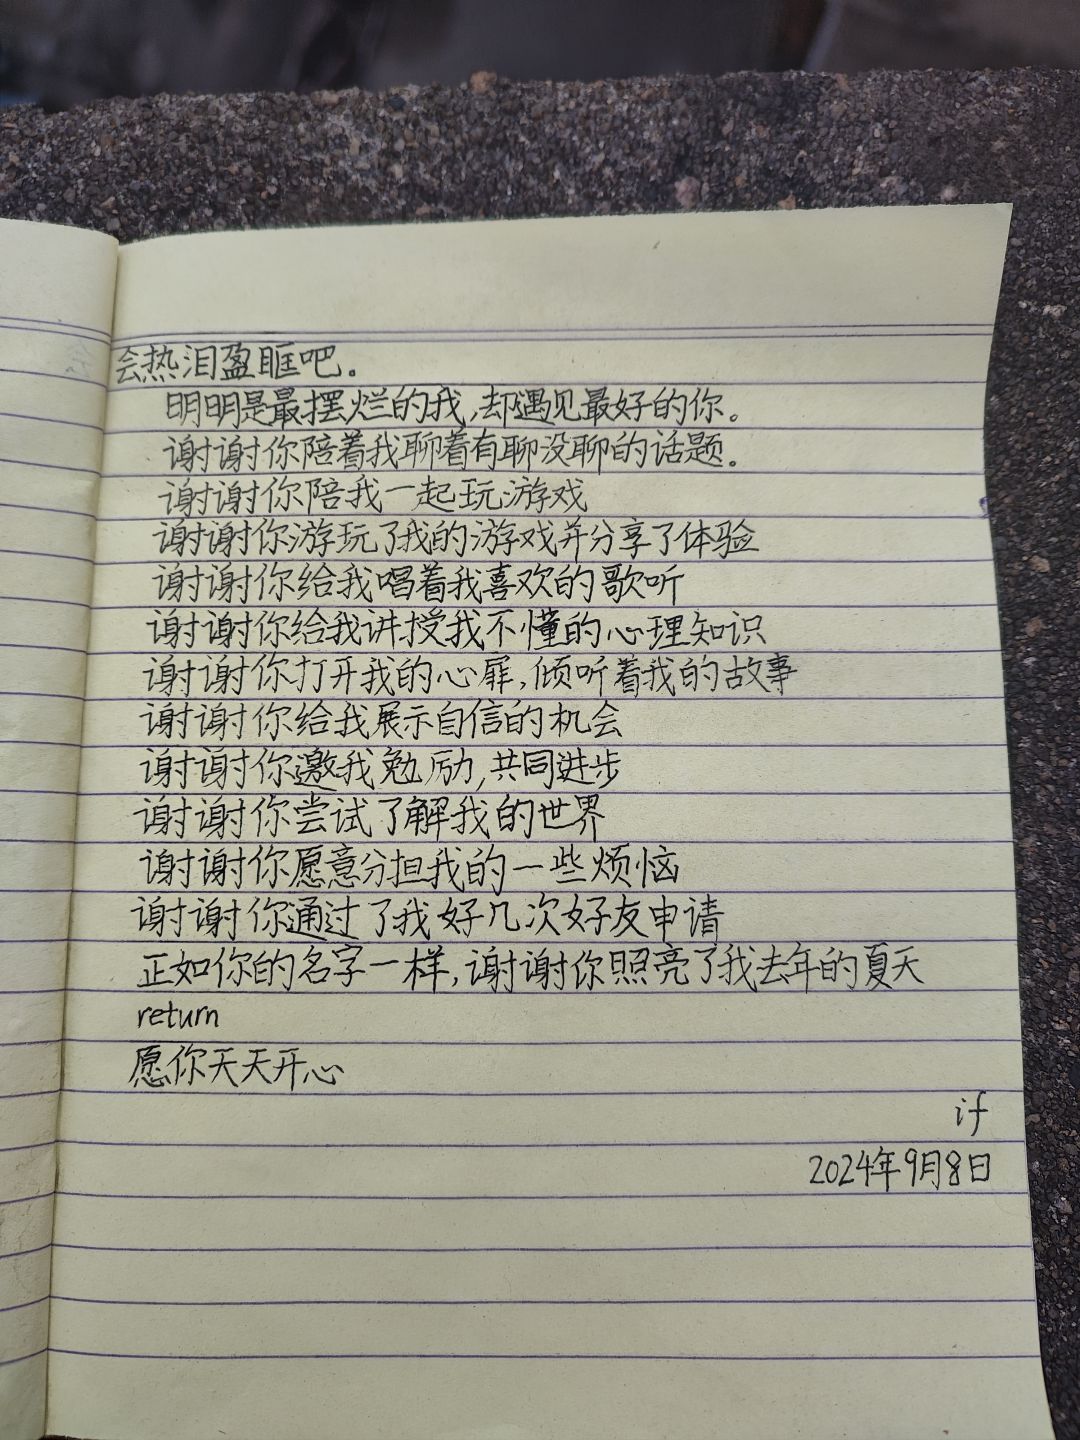 会热泪盈眶吧。
明明是最摆烂的我,却遇见最好的你。
谢谢你陪着我聊着有聊没聊的话题。
谢谢你陪我一起玩游戏
谢谢你游玩了我的游戏并分享了体验
谢谢你给我唱着我喜欢的歌听
谢谢你给我讲授我不懂的心理知识
谢谢你打开我的心扉,倾听着我的故事
谢谢你给我展示自信的机会
谢谢你邀我勉励,共同进步
谢谢你尝试了解我的世界
谢谢你愿意分担我的一些烦恼
谢谢你通过了我好几次好友申请
正如你的名字一样,谢谢你照亮了我去年的夏天
return
愿你天天开心
if
2024年9月8日